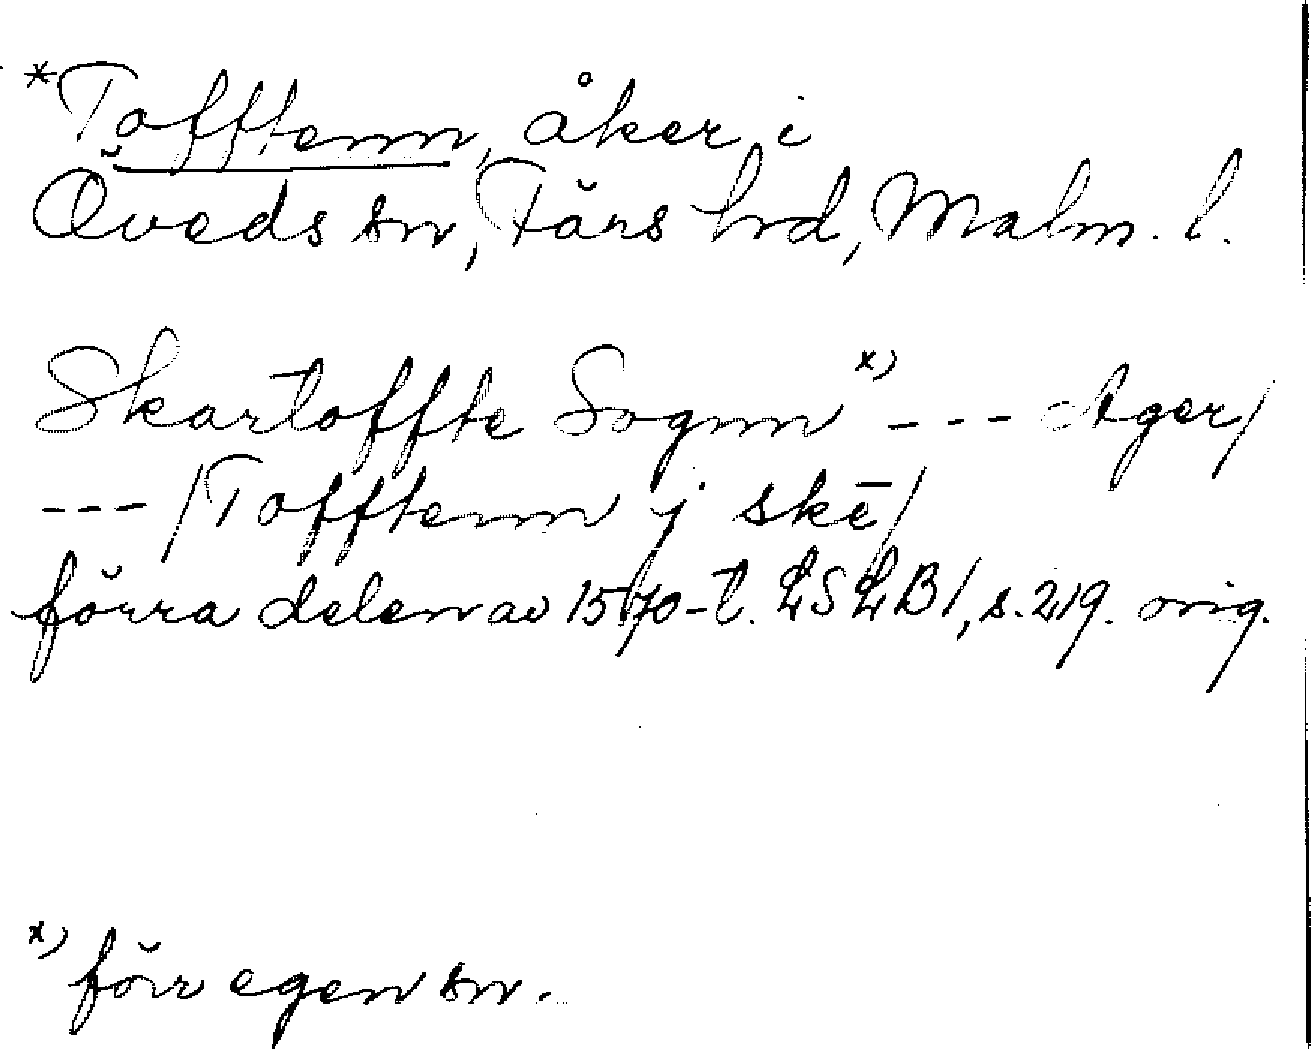 *Tofftenn, åker i
Öveds sn, Färs hrd, Malm. l.
Skartoffte Sognn x) --- Ager/
--- /Tofftenn j skē/
förra delen av 1570-t. LSLB1, s. 219. orig.
x) förr egen sn.